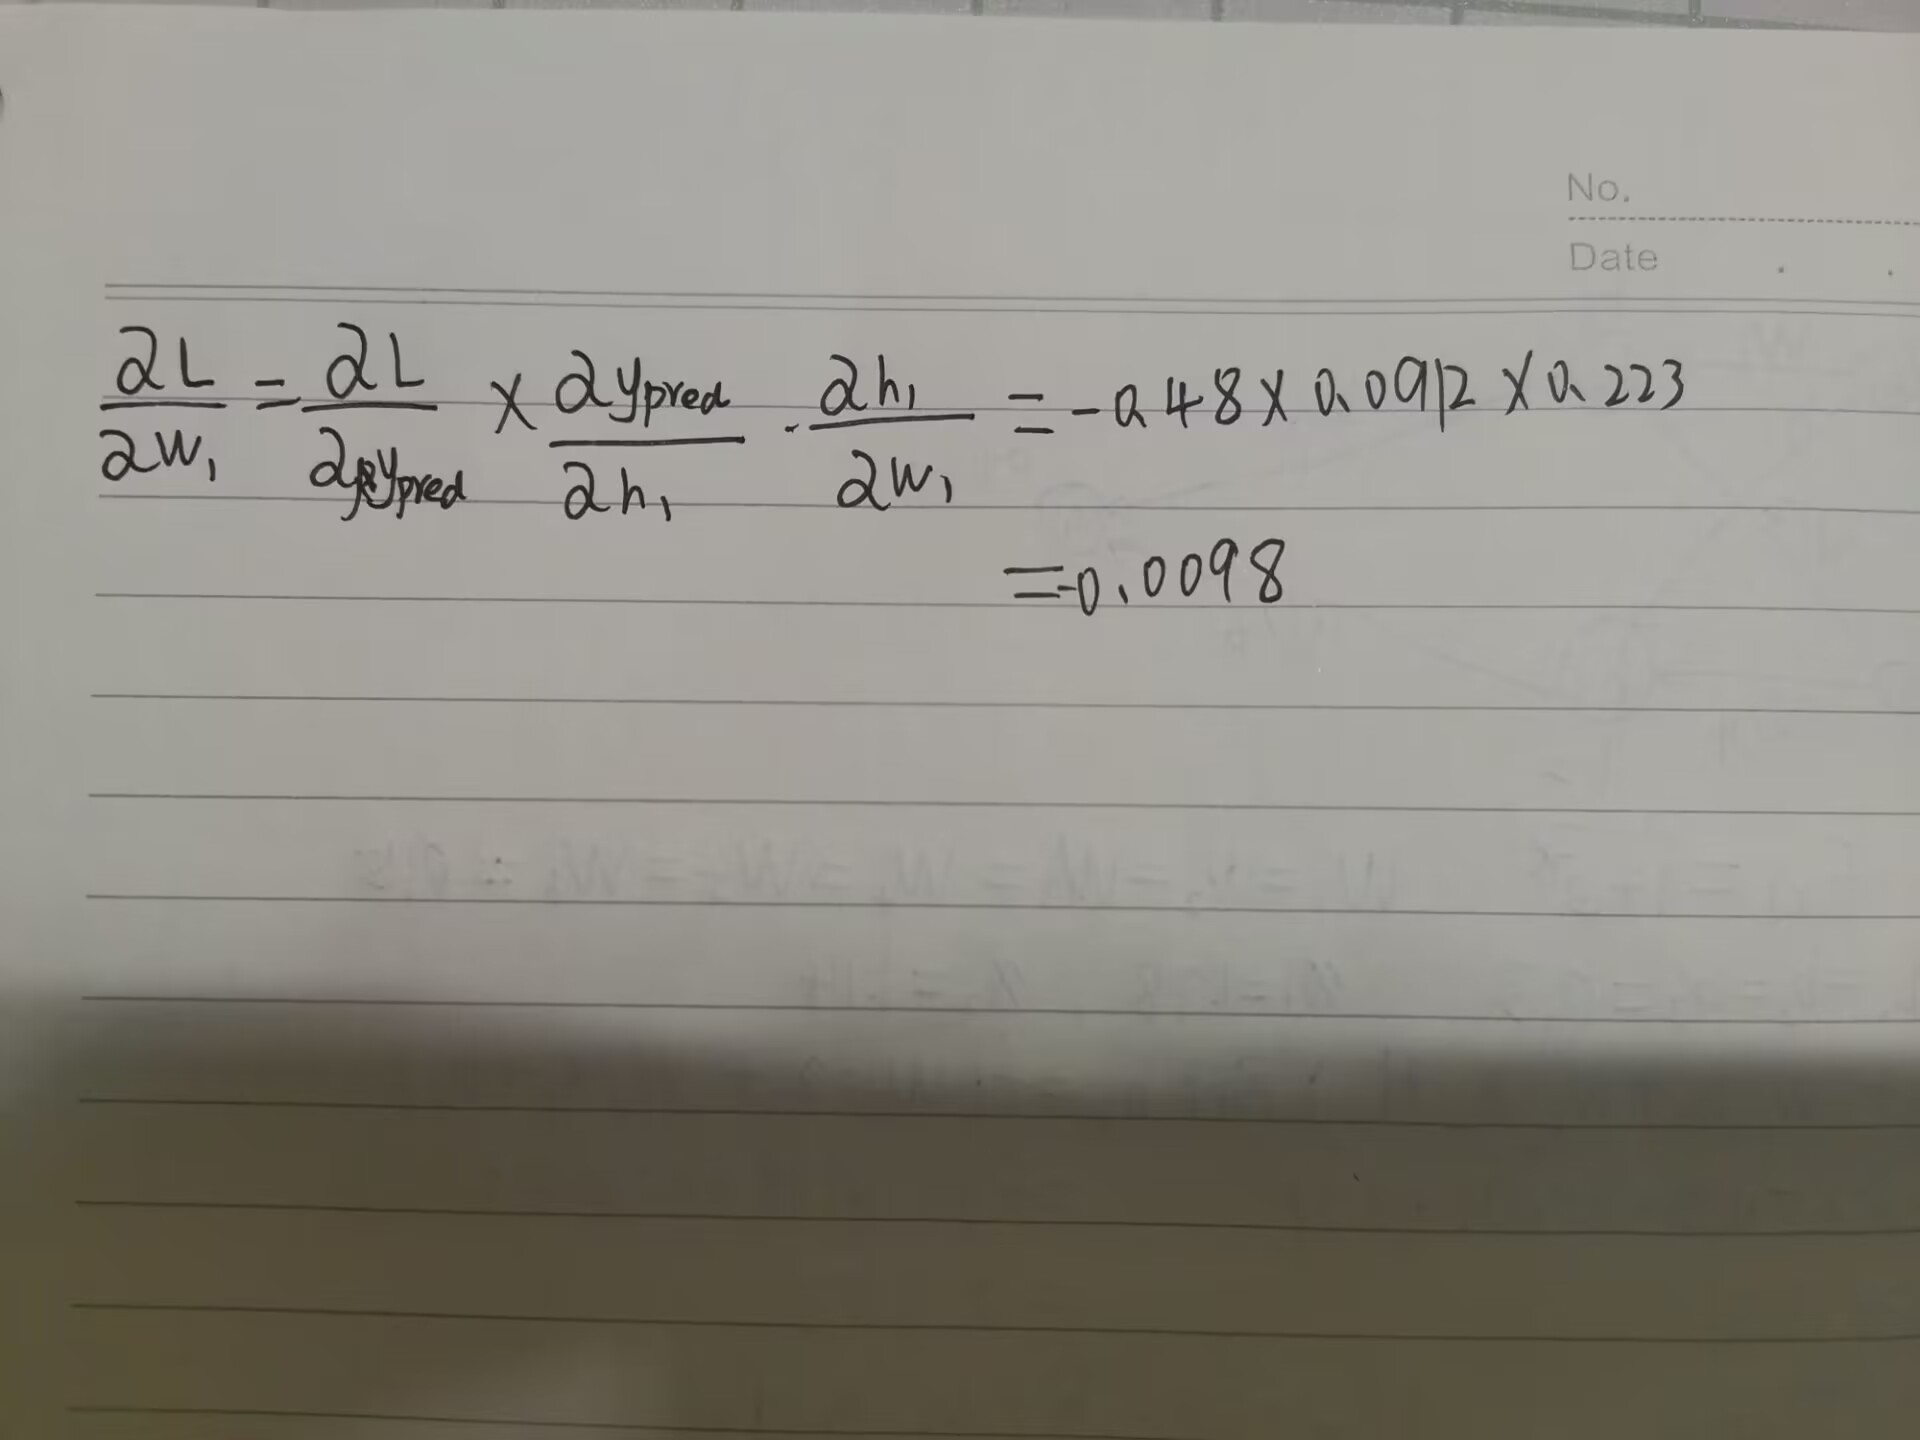 No.
Date
∂L/∂w₁ = ∂L/∂ypred × ∂ypred/∂h₁ · ∂h₁/∂w₁ = -0.48 × 0.0912 × 0.223
= -0.0098